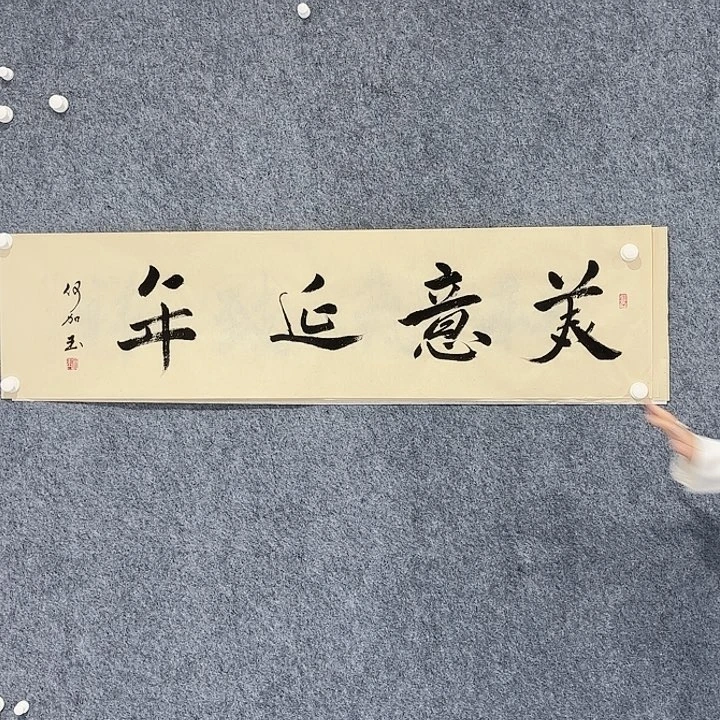 美意延年
何加玉